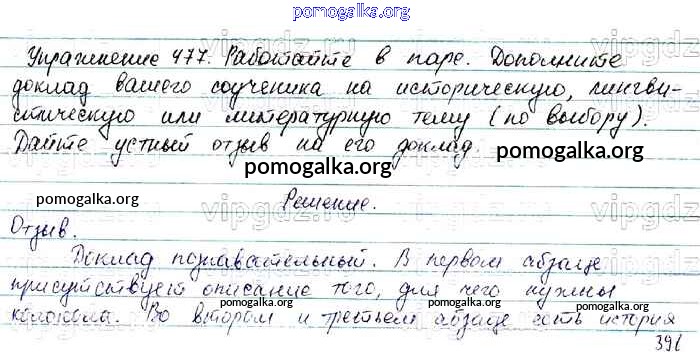 pomogalka.org
Упражнение 477. Работайте в паре. Дополните
доклад вашего соученика на историческую, лингви-
стическую или литературную тему (по выбору).
Дайте устный отзыв на его доклад.
pomogalka.org
pomogalka.org
pomogalka.org
pomogalka.org
Решение.
Отзыв.
Доклад познавательный. В первом абзаце
pomogalka.org
присутствует описание того, для чего нужны
pomogalka.org
pomogalka.org
колокола. Во втором и третьем абзаце есть история
391